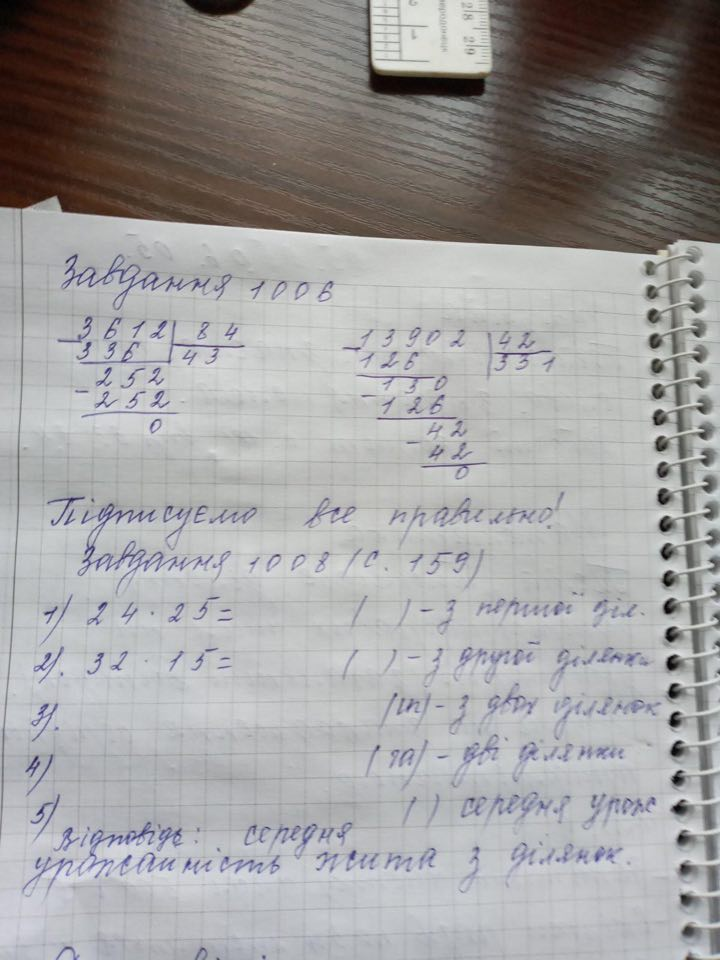 Завдання 1006
3612 84
336 43
252
252
0
13902 42
126 331
130
126
42
42
0
Підписуємо все правильно!
Завдання 1008 (с. 159)
1) 24 · 25 = ( ) - з першої діл.
2). 32 · 15 = ( ) - з другої ділянки
3). (ц) - з двох ділянок
4) (га) - дві ділянки
5) ( ) середня урож
Відповідь: середня
урожайність жита з ділянок.